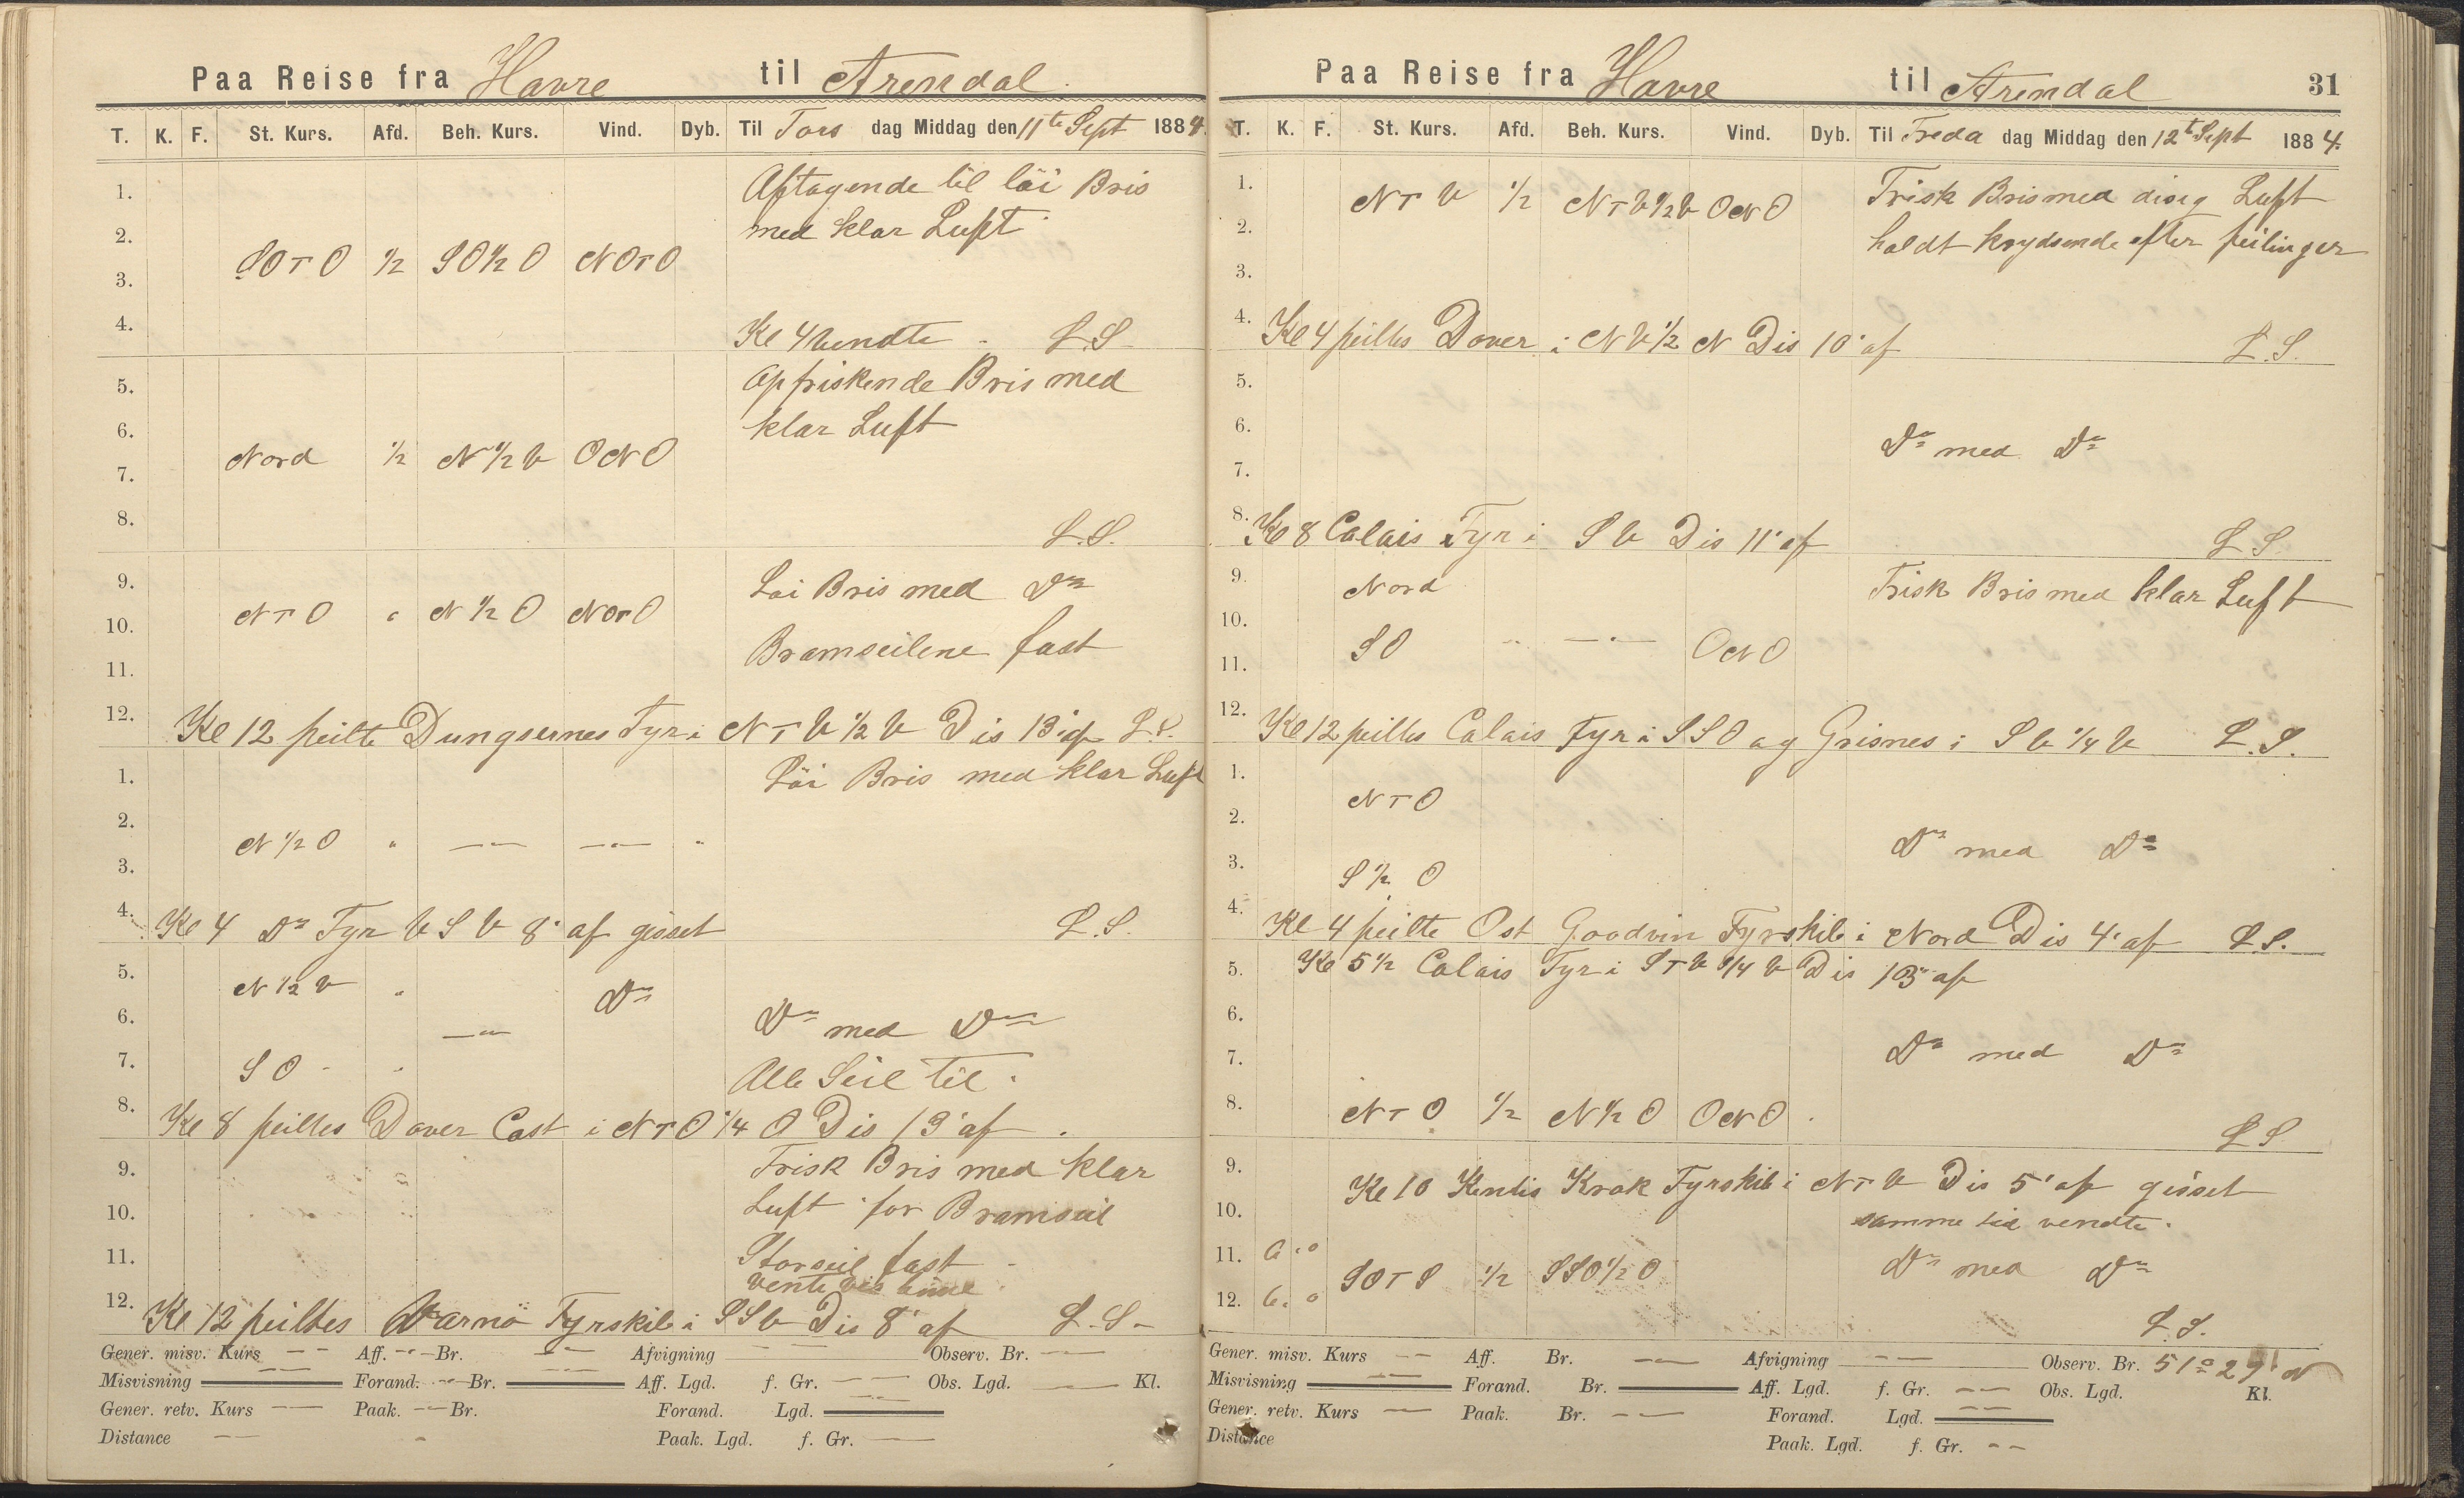 Paa Reise fra Havre til Arendal.
T. K. F. St. Kurs. Afd. Beh. Kurs. Vind. Dyb. Til Tors dag Middag den 11te Sept 1884.
Aftagende til löi Bris
1.
med klar Luft
2.
SOTO 1/2 SO1/2O NOTO
3.
4. Kl 4 vendte L.S
Opfriskende Bris med
5.
klar Luft
6.
Nord 1/2 N1/2V ONO
7.
8. L.S.
9. Löi Bris med Do
NTO " N1/2O NOTO
10.
Bramseilene fast
11.
12. Kl 12 peilte Dungsernes Fyr i NTV1/2V Dis 13' af L.S.
Löi Bris med klar Luft
1.
2.
N1/2O " —"— —"— "
3.
4. Kl 4 Do Fyr VSV 8' af gisset L.S.
5. N1/2V " Do
6. —"— Do med Do
7. SO " Alle Seil til.
8. Kl 8 peiltes Dover Cast i NTO1/4O Dis 13' af.
9. Frisk Bris med klar
10. Luft for Bramseil
11. Storseil fast
vente
12. Kl 12 peiltes Varnö Fyrskib i SSV Dis 8' af L.S.
Gener. misv. Kurs — Aff. —"— Br. —"— Afvigning — — Observ. Br. —"—
Misvisning — Forand. —"— Br. — Aff. Lgd. f. Gr. — — Obs. Lgd. — Kl.
Gener. retv. Kurs — Paak. —"— Br. Forand. Lgd. —
Distance — Paak. Lgd. f. Gr. —
Paa Reise fra Havre til Arendal 31
T. K. F. St. Kurs. Afd. Beh. Kurs. Vind. Dyb. Til Freda dag Middag den 12te Sept 1884.
1. NTV 1/2 NTV1/2V ONO Frisk Bris med disig Luft
2. holdt krydsende efter peilinger
3.
4. Kl 4 peiltes Dover i NV1/2N Dis 10' af L.S.
5.
6. Do med Do
7.
8. Kl 8 Calais Fyr i SV Dis 11' af L.S.
9. Nord Frisk Bris med klar Luft
10.
SO " —"— ONO
11.
12. Kl 12 peiltes Calais Fyr i SSO og Grisnes i SV1/4V L.S.
1.
NTO
2.
Do med Do
3. S1/2O
4. Kl 4 peilte Ost Goodvin Fyrskib i Nord Dis 4' af L.S.
5. Kl 5 1/2 Calais Fyr i STV3/4V Dis 13' af
6.
7. Do med Do
8. NTO 1/2 N1/2O ONO L.S
9.
Kl 10 Kentis Knok Fyrskib i NTV Dis 5' af gisset
10. samme tid vendte.
11. 6.0 Do med Do
SOTS 1/2 SSO1/2O
12. 6.0
L.S.
Gener. misv. Kurs — Aff. Br. —"— Afvigning — Observ. Br. 51° 27' N
Misvisning — Forand. Br. — Aff. Lgd. f. Gr. — — Obs. Lgd. Kl.
Gener. retv. Kurs — Paak. Br. —"— Forand. Lgd. —
Distance Paak. Lgd. f. Gr. — —